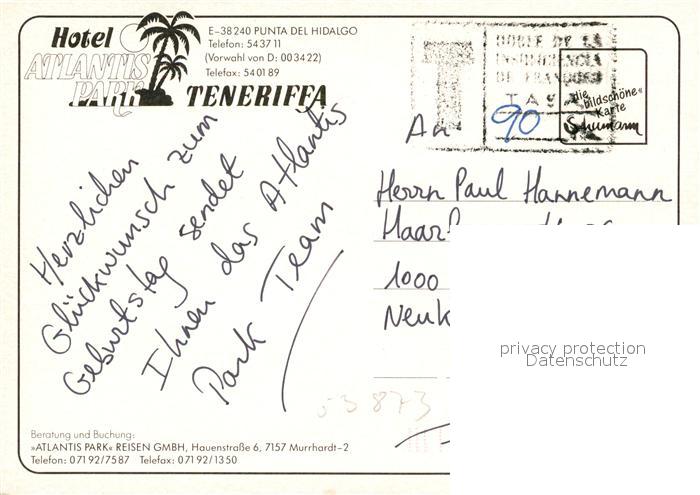 Hotel
ATLANTIS
PARK
TENERIFFA
E-38240 PUNTA DEL HIDALGO
Telefon: 543711
(Vorwahl von D: 003422)
Telefax: 540189
T
DOBLE DE LA
INSUFICIENCIA
DE FRANQUEO
TASA
90
die
»bildschöne«
Karte
Schumann
Herzlichen
Glückwunsch zum
Geburtstag sendet
Ihnen das Atlantis
Park Team
An
Herrn Paul Hannemann
1000
privacy protection
Datenschutz
53873
Beratung und Buchung:
»ATLANTIS PARK« REISEN GMBH, Hauenstraße 6, 7157 Murrhardt-2
Telefon: 07192/7587 Telefax: 07192/1350